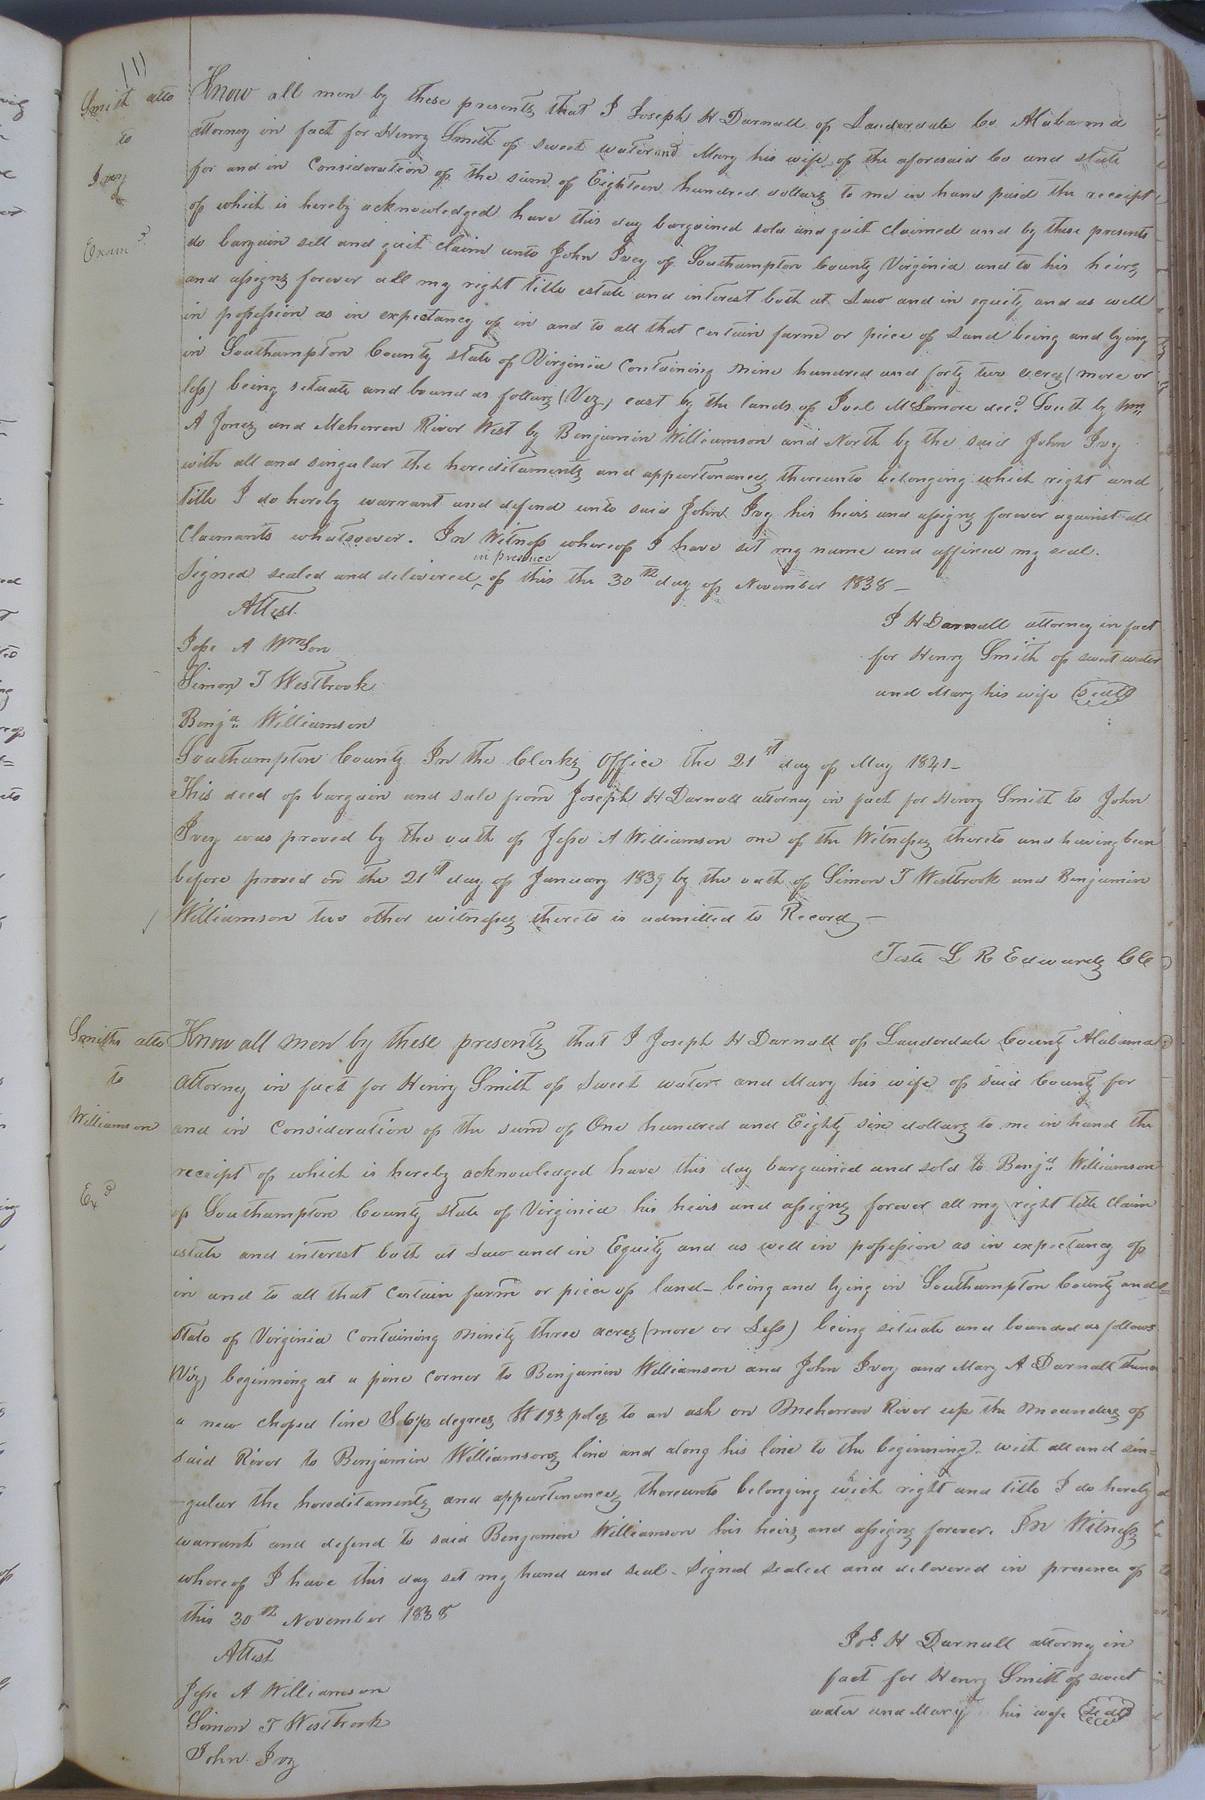 111
Smith atto
to
Ivey
Exam d
Know all men by these presents that I Joseph H Darnall of Lauderdale Co Alabama
attorney in fact for Henry Smith of sweet water and Mary his wife of the aforesaid Co and state
for and in Consideration of the sum of Eighteen hundred dollars to me in hand paid the receipt
of which is hereby acknowledged have this day bargained sold and quit claimed and by these presents
do bargain sell and quit claim unto John Ivey of Southampton County Virginia and to his heirs
and assigns forever all my right title estate and interest both at Law and in equity and as well
in possession as in expectancy of in and to all that certain farm or piece of Land being and lying
in Southampton County state of Virginia Containing Nine hundred and forty two acres (more or
less) being situate and bound as follows (Viz,) east by the lands of Joel McLemore decd South by Wm
A Jones and Meherren River West by Benjamin Williamson and North by the said John Ivy
with all and singular the hereditaments and appertenances thereunto belonging which right and
title I do hereby warrant and defend unto said John Ivy his heirs and assigns forever against all
Claimants whatsoever. In Witness whereof I have set my name and affixed my seal.
Signed sealed and delivered in presence of this the 30th day of November 1838 -
Attest
Jesse A WmSon
Simon T Westbrook
Benja Williamson
J H Darnall attorney in fact
for Henry Smith of sweet water
and Mary his wife Seal
Southampton County In the Clerks Office the 21st day of May 1841 -
This deed of bargain and sale from Joseph H Darnall attorney in fact for Henry Smith to John
Ivey was proved by the oath of Jesse A Williamson one of the Witnesses thereto and having been
before proved on the 21st day of January 1839 by the oath of Simon T Westbrook and Benjamin
Williamson two other witnesses thereto is admitted to Record -
Teste L R Edwards CC
Smiths atto
to
Williamson
Exd
Know all men by these presents that I Joseph H Darnall of Lauderdale County Alabama
attorney in fact for Henry Smith of Sweet water and Mary his wife of said County for
and in Consideration of the sum of One hundred and Eighty six dollars to me in hand the
receipt of which is hereby acknowledged have this day bargained and sold to Benja Williamson
of Southampton County state of Virginia his heirs and assigns forever all my right title Claim
estate and interest both at Law and in Equity and as well in possession as in expectancy of
in and to all that Certain farm or piece of land - being and lying in Southampton County and
state of Virginia Containing Ninety three acres (more or Less) being situate and bounded as follows
(Viz) beginning at a pine corner to Benjamin Williamson and John Ivey and Mary A Darnall thence
a new choped line S 6½ degrees W 193 poles to an ash on Meherren River up the Meanders of
said River to Benjamin Williamsons line and along his line to the beginning. with all and sin-
-gular the hereditaments and appertenances thereunto belonging wich right and title I do hereby
warrant and defend to said Benjamin Williamson his heirs and assigns forever. In Witness
whereof I have this day set my hand and seal - Signed sealed and delevered in presence of
this 30th November 1838
Attest
Jesse A Williamson
Simon T Westbrook
John Ivy
Jos. H Darnall attorney in
fact for Henry Smith of sweet
water and Mary his wife Seal